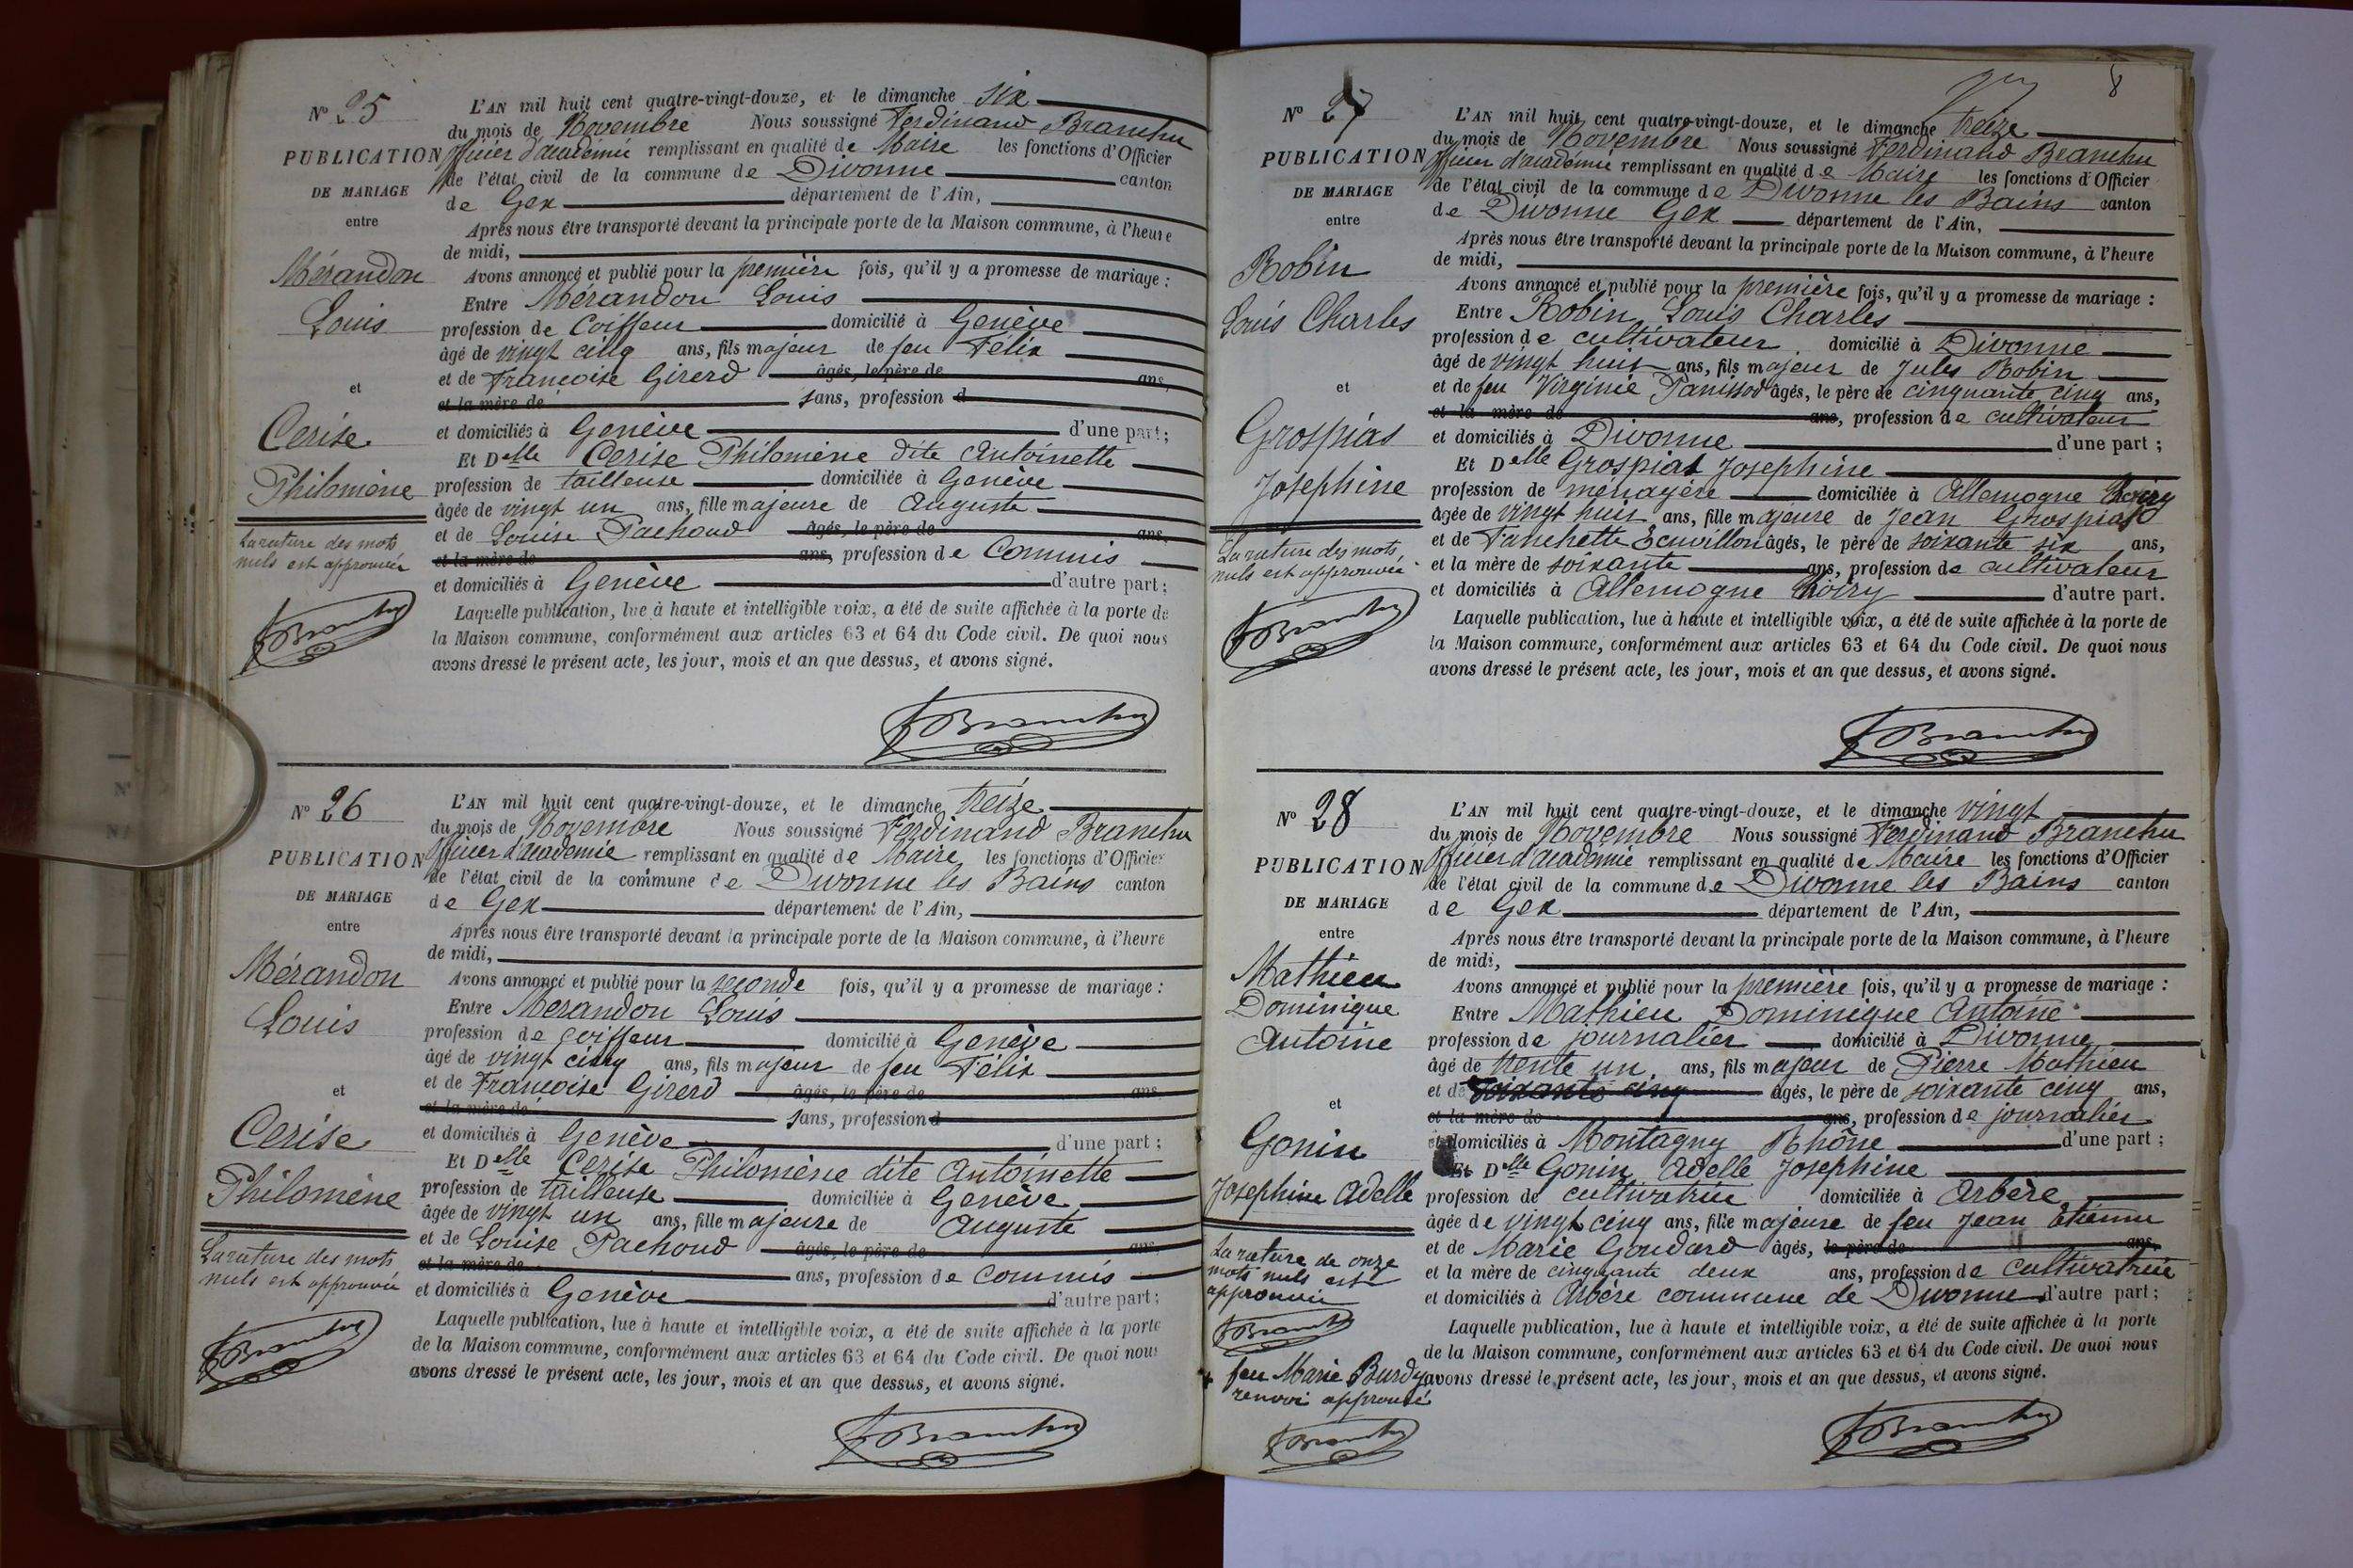 N° 25
PUBLICATION
DE MARIAGE
entre
Mérandon
Louis
et
Cerise
Philomène
La rature des mots
nuls est approuvée
FBranchu
L'AN mil huit cent quatre-vingt-douze, et le dimanche six
du mois de Novembre Nous soussigné Ferdinand Branchu
officier d'académie remplissant en qualité de Maire les fonctions d'Officier
de l'état civil de la commune de Divonne canton
de Gex département de l'Ain,
Après nous être transporté devant la principale porte de la Maison commune, à l'heure
de midi,
Avons annoncé et publié pour la première fois, qu'il y a promesse de mariage :
Entre Mérandon Louis
profession de Coiffeur domicilié à Genève
âgé de vingt cinq ans, fils majeur de feu Félix
et de Françoise Girerd âgés, le père de ans,
et la mère de sans, profession d
et domiciliés à Genève d'une part;
Et Delle Cerise Philomène dite Antoinette
profession de tailleuse domiciliée à Genève
âgée de vingt un ans, fille majeure de Auguste
et de Louise Pachoud âgés, le père de ans,
et la mère de ans, profession de Commis
et domiciliés à Genève d'autre part;
Laquelle publication, lue à haute et intelligible voix, a été de suite affichée à la porte de
la Maison commune, conformément aux articles 63 et 64 du Code civil. De quoi nous
avons dressé le présent acte, les jour, mois et an que dessus, et avons signé.
FBranchu
N° 26
PUBLICATION
DE MARIAGE
entre
Mérandon
Louis
et
Cerise
Philomène
La rature des mots
nuls est approuvée
FBranchu
L'AN mil huit cent quatre-vingt-douze, et le dimanche treize
du mois de Novembre Nous soussigné Ferdinand Branchu
officier d'academie remplissant en qualité de Maire les fonctions d'Officier
de l'état civil de la commune de Divonne les Bains canton
de Gex département de l'Ain,
Après nous être transporté devant la principale porte de la Maison commune, à l'heure
de midi,
Avons annoncé et publié pour la seconde fois, qu'il y a promesse de mariage :
Entre Mérandon Louis
profession de coiffeur domicilié à Genève
âgé de vingt cinq ans, fils majeur de feu Félix
et de Françoise Girerd âgés, le père de ans
et la mère de sans, profession d
et domiciliés à Genève d'une part;
Et Delle Cerise Philomène dite Antoinette
profession de tailleuse domiciliée à Genève
âgée de vingt un ans, fille majeure de Auguste
et de Louise Pachoud âgés, le père de ans,
et la mère de ans, profession de commis
et domiciliés à Genève d'autre part;
Laquelle publication, lue à haute et intelligible voix, a été de suite affichée à la porte
de la Maison commune, conformément aux articles 63 et 64 du Code civil. De quoi nous
avons dressé le présent acte, les jour, mois et an que dessus, et avons signé.
FBranchu
8
N° 27
PUBLICATION
DE MARIAGE
entre
Robin
Louis Charles
et
Grospias
Josephine
La rature des mots
nuls est approuvée
FBranchu
L'AN mil huit cent quatre-vingt-douze, et le dimanche treize
du mois de Novembre Nous soussigné Ferdinand Branchu
officier d'académie remplissant en qualité de Maire les fonctions d'Officier
de l'état civil de la commune de Divonne les Bains canton
de Divonne Gex département de l'Ain,
Après nous être transporté devant la principale porte de la Maison commune, à l'heure
de midi,
Avons annoncé et publié pour la première fois, qu'il y a promesse de mariage :
Entre Robin Louis Charles
profession de cultivateur domicilié à Divonne
âgé de vingt huit ans, fils majeur de Jules Robin
et de feu Virginie Panissod âgés, le père de cinquante cinq ans,
et la mère de ans, profession de cultivateur
et domiciliés à Divonne d'une part ;
Et Delle Grospias Josephine
profession de ménagère domiciliée à Allemogne Thoiry
âgée de vingt huit ans, fille majeure de Jean Grospias
et de Fanchette Ecuvillon âgés, le père de soixante six ans,
et la mère de soixante ans, profession de cultivateur
et domiciliés à Allemogne Thoiry d'autre part.
Laquelle publication, lue à haute et intelligible voix, a été de suite affichée à la porte de
la Maison commune, conformément aux articles 63 et 64 du Code civil. De quoi nous
avons dressé le présent acte, les jour, mois et an que dessus, et avons signé.
FBranchu
N° 28
PUBLICATION
DE MARIAGE
entre
Mathieu
Dominique
Antoine
et
Gonin
Josephine Adelle
La rature de onze
mots nuls est
approuvée
FBranchu
feu Marie Burdy
renvoi approuvé
FBranchu
L'AN mil huit cent quatre-vingt-douze, et le dimanche vingt
du mois de Novembre Nous soussigné Ferdinand Branchu
officier d'academie remplissant en qualité de Maire les fonctions d'Officier
de l'état civil de la commune de Divonne les Bains canton
de Gex département de l'Ain,
Après nous être transporté devant la principale porte de la Maison commune, à l'heure
de midi,
Avons annoncé et publié pour la première fois, qu'il y a promesse de mariage :
Entre Mathieu Dominique Antoine
profession de journalier domicilié à Divonne
âgé de trente un ans, fils majeur de Pierre Mathieu
et de soixante cinq âgés, le père de soixante cinq ans,
et la mère de ans, profession de journalier
et domiciliés à Montagny Rhône d'une part ;
Et Delle Gonin Adelle Josephine
profession de cultivatrice domiciliée à Arbère
âgée de vingt cinq ans, fille majeure de feu Jean Etienne
et de Marie Goudard âgés, le père de ans,
et la mère de cinquante deux ans, profession de cultivatrice
et domiciliés à Arbère commune de Divonne d'autre part ;
Laquelle publication, lue à haute et intelligible voix, a été de suite affichée à la porte
de la Maison commune, conformément aux articles 63 et 64 du Code civil. De quoi nous
avons dressé le présent acte, les jour, mois et an que dessus, et avons signé.
FBranchu